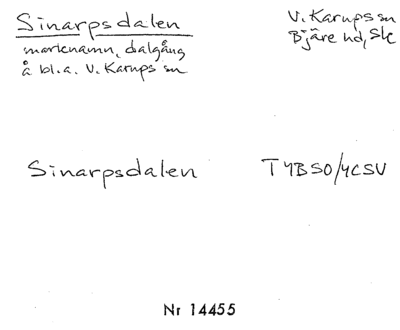 Sinarpsdalen
marknamn, dalgång
å bl.a. V. Karups sn
V. Karups sn
Bjäre hd, Sk
Sinarpsdalen
T4BSO/4CSV
Nr 14455